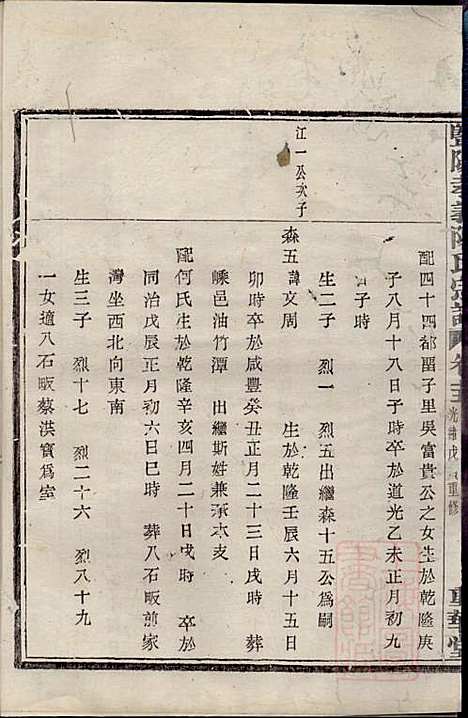 暨陽孝義陳氏宗譜 卷十五 光緒戊 重修
配四十四都塸子里吳富貴公之女生於乾隆庚
子八月十八日子時卒於道光乙未正月初九
日子時
生二子 烈一 烈五出繼森十五公爲嗣
江一公次子
森五諱文周 生於乾隆壬辰六月十五日
卯時卒於咸豐癸丑正月二十三日戌時 葬
嵊邑油竹潭 出繼斯姓兼承本支
配何氏生於乾隆辛亥四月二十日戌時 卒於
同治戊辰正月初六日巳時 葬八石畈前家
灣坐西北向東南
生三子 烈十七 烈二十六 烈八十九
一女適八石畈蔡洪寳爲室